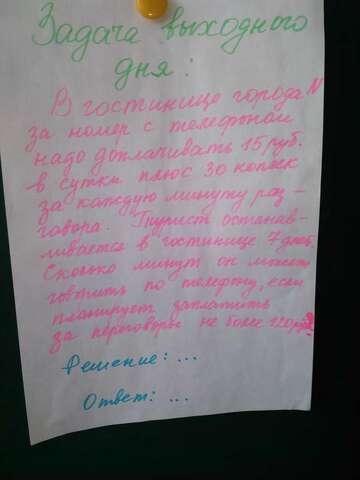 Задача выходного
дня.
В гостинице города N
за номер с телефоном
надо доплачивать 15 руб.
в сутки плюс 30 копеек
за каждую минуту раз-
говора. Турист останав-
ливается в гостинице 7 дней.
Сколько минут он может
говорить по телефону, если
планирует заплатить
за переговоры не более 120 руб?
Решение: ...
Ответ: ...